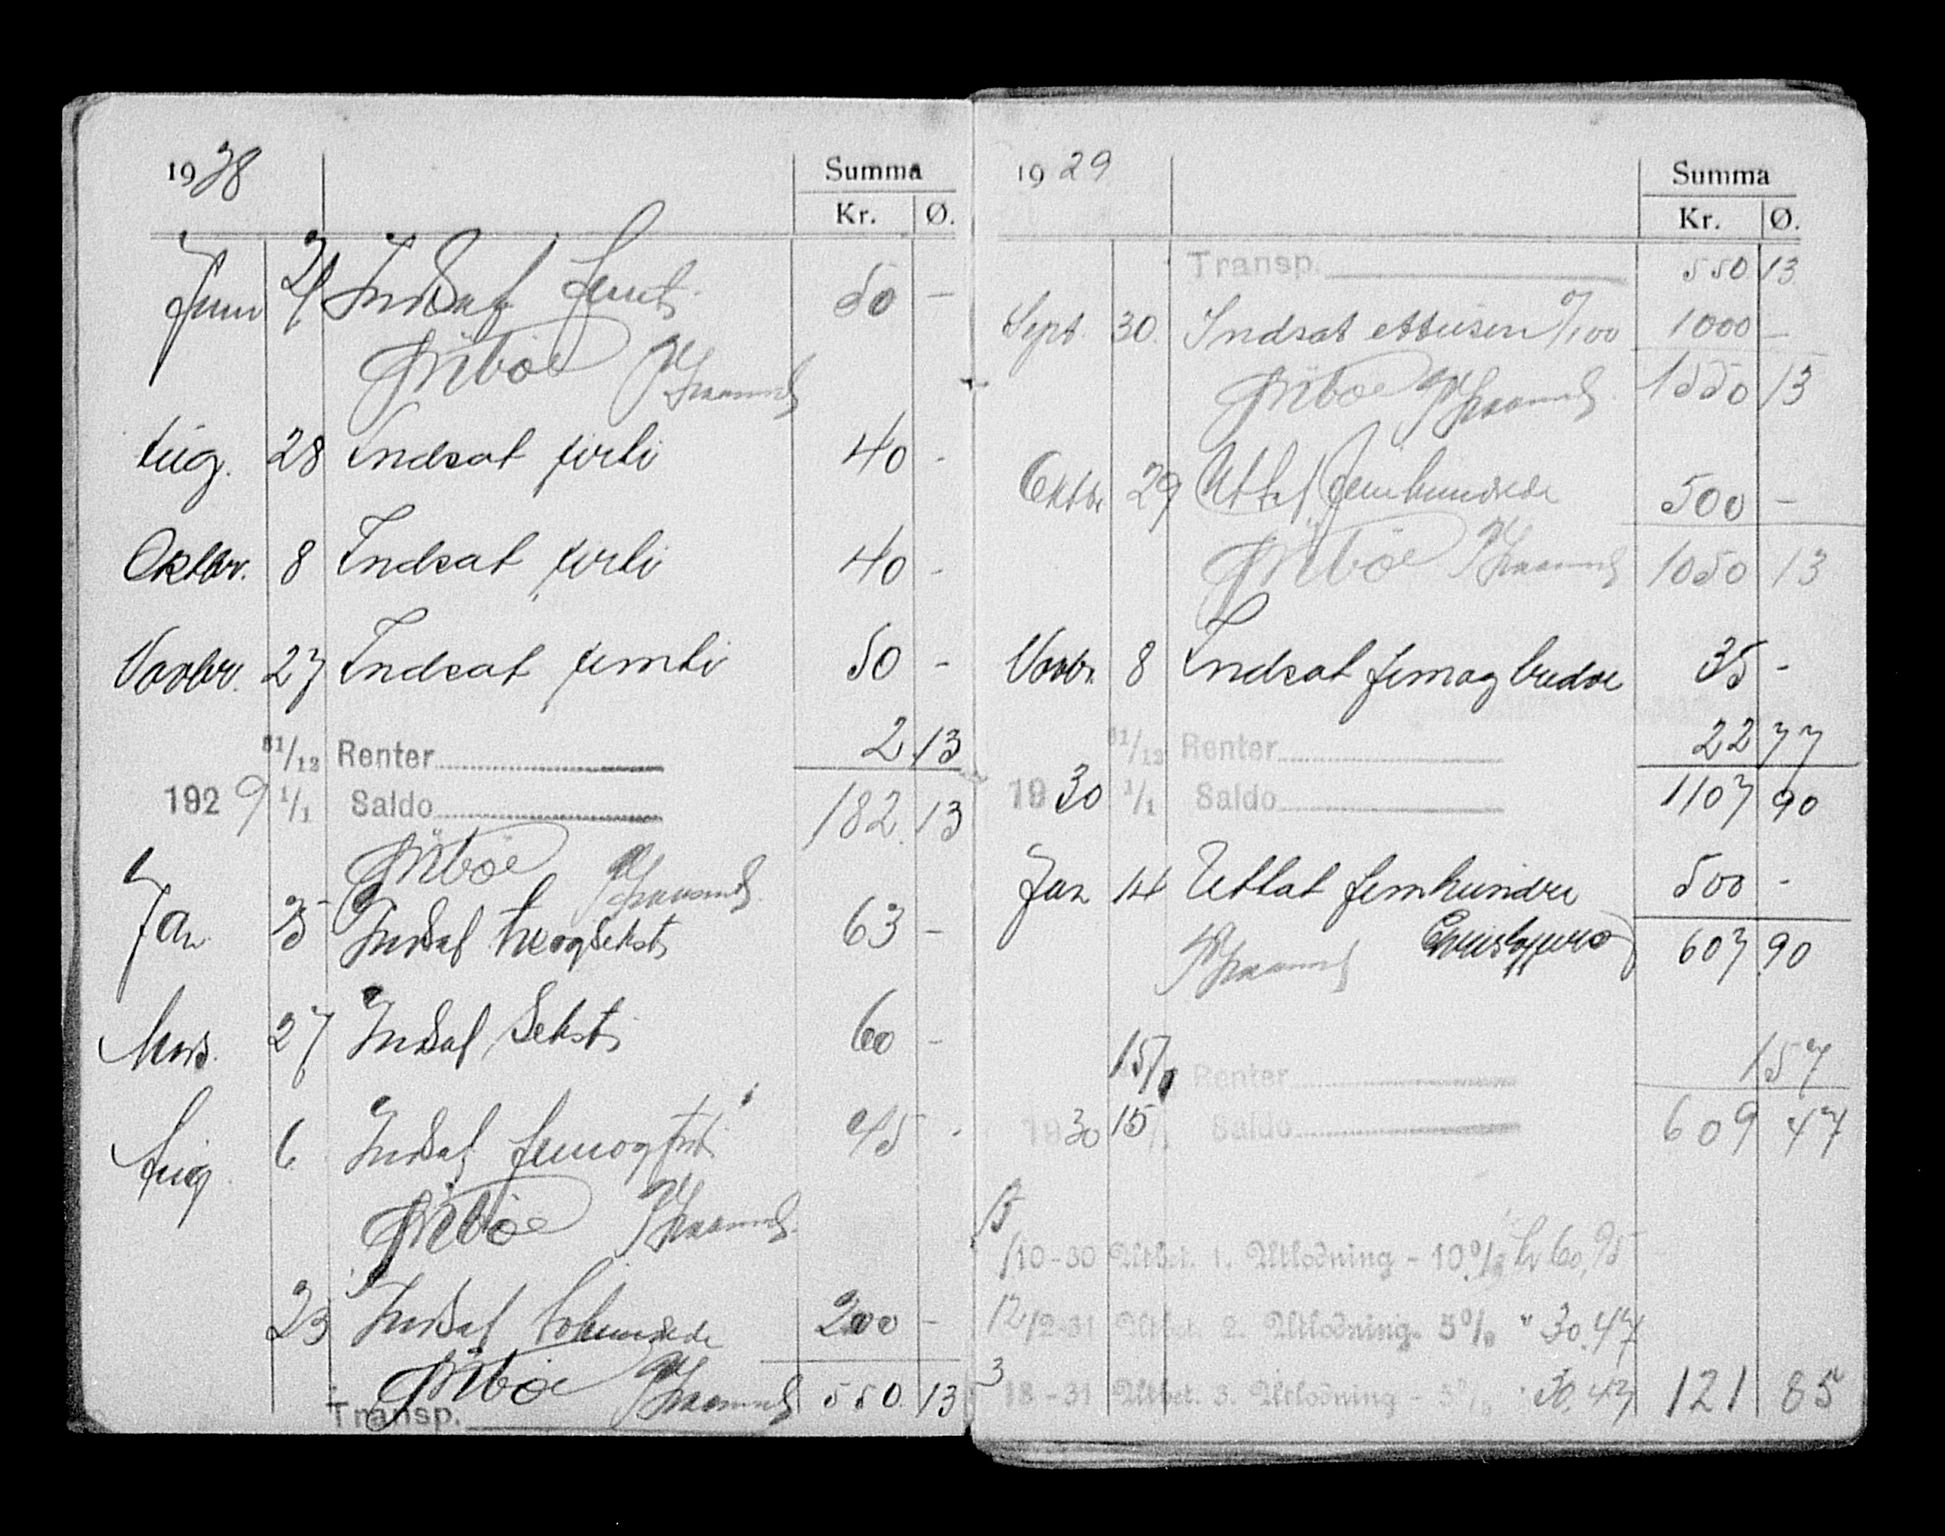 1928
Summa
Kr. Ø.
Juni 21 Indsat femti 50 -
Aug. 28 Indsat firti 40 -
Oktbr. 8 Indsat firti 40 -
Novbr. 27 Indsat femti 50 -
31/12 Renter 2 13
1929 1/1 Saldo 182 13
Jan. 25 Indsat treogseksti 63 -
Mars. 27 Indsat Seksti 60 -
Aug 6 Indsat femogfirti 45 -
23 Indsat tohundrede 200 -
550 13
Transp.
1929
Summa
Kr. Ø.
Transp. 550 13
Sept. 30. Indsat ettusen 0/100 1000 -
1550 13
Oktbr 29 Uttat femhundrede 500 -
1050 13
Novbr. 8 Indsat femogtredve 35 -
31/12 Renter 22 77
1930 1/1 Saldo 1107 90
Jan 14 Uttat femhundre 500 -
607 90
15/1 Renter 1 57
1930 15/1 Saldo 609 47
15/10-30 Utbet. 1. Utlodning - 10% kr 60,95
12/2-31 Utbet. 2. Utlodning - 5% " 30.47
3
18-31 Utbet. 3. Utlodning - 5% " 30.43 121 85